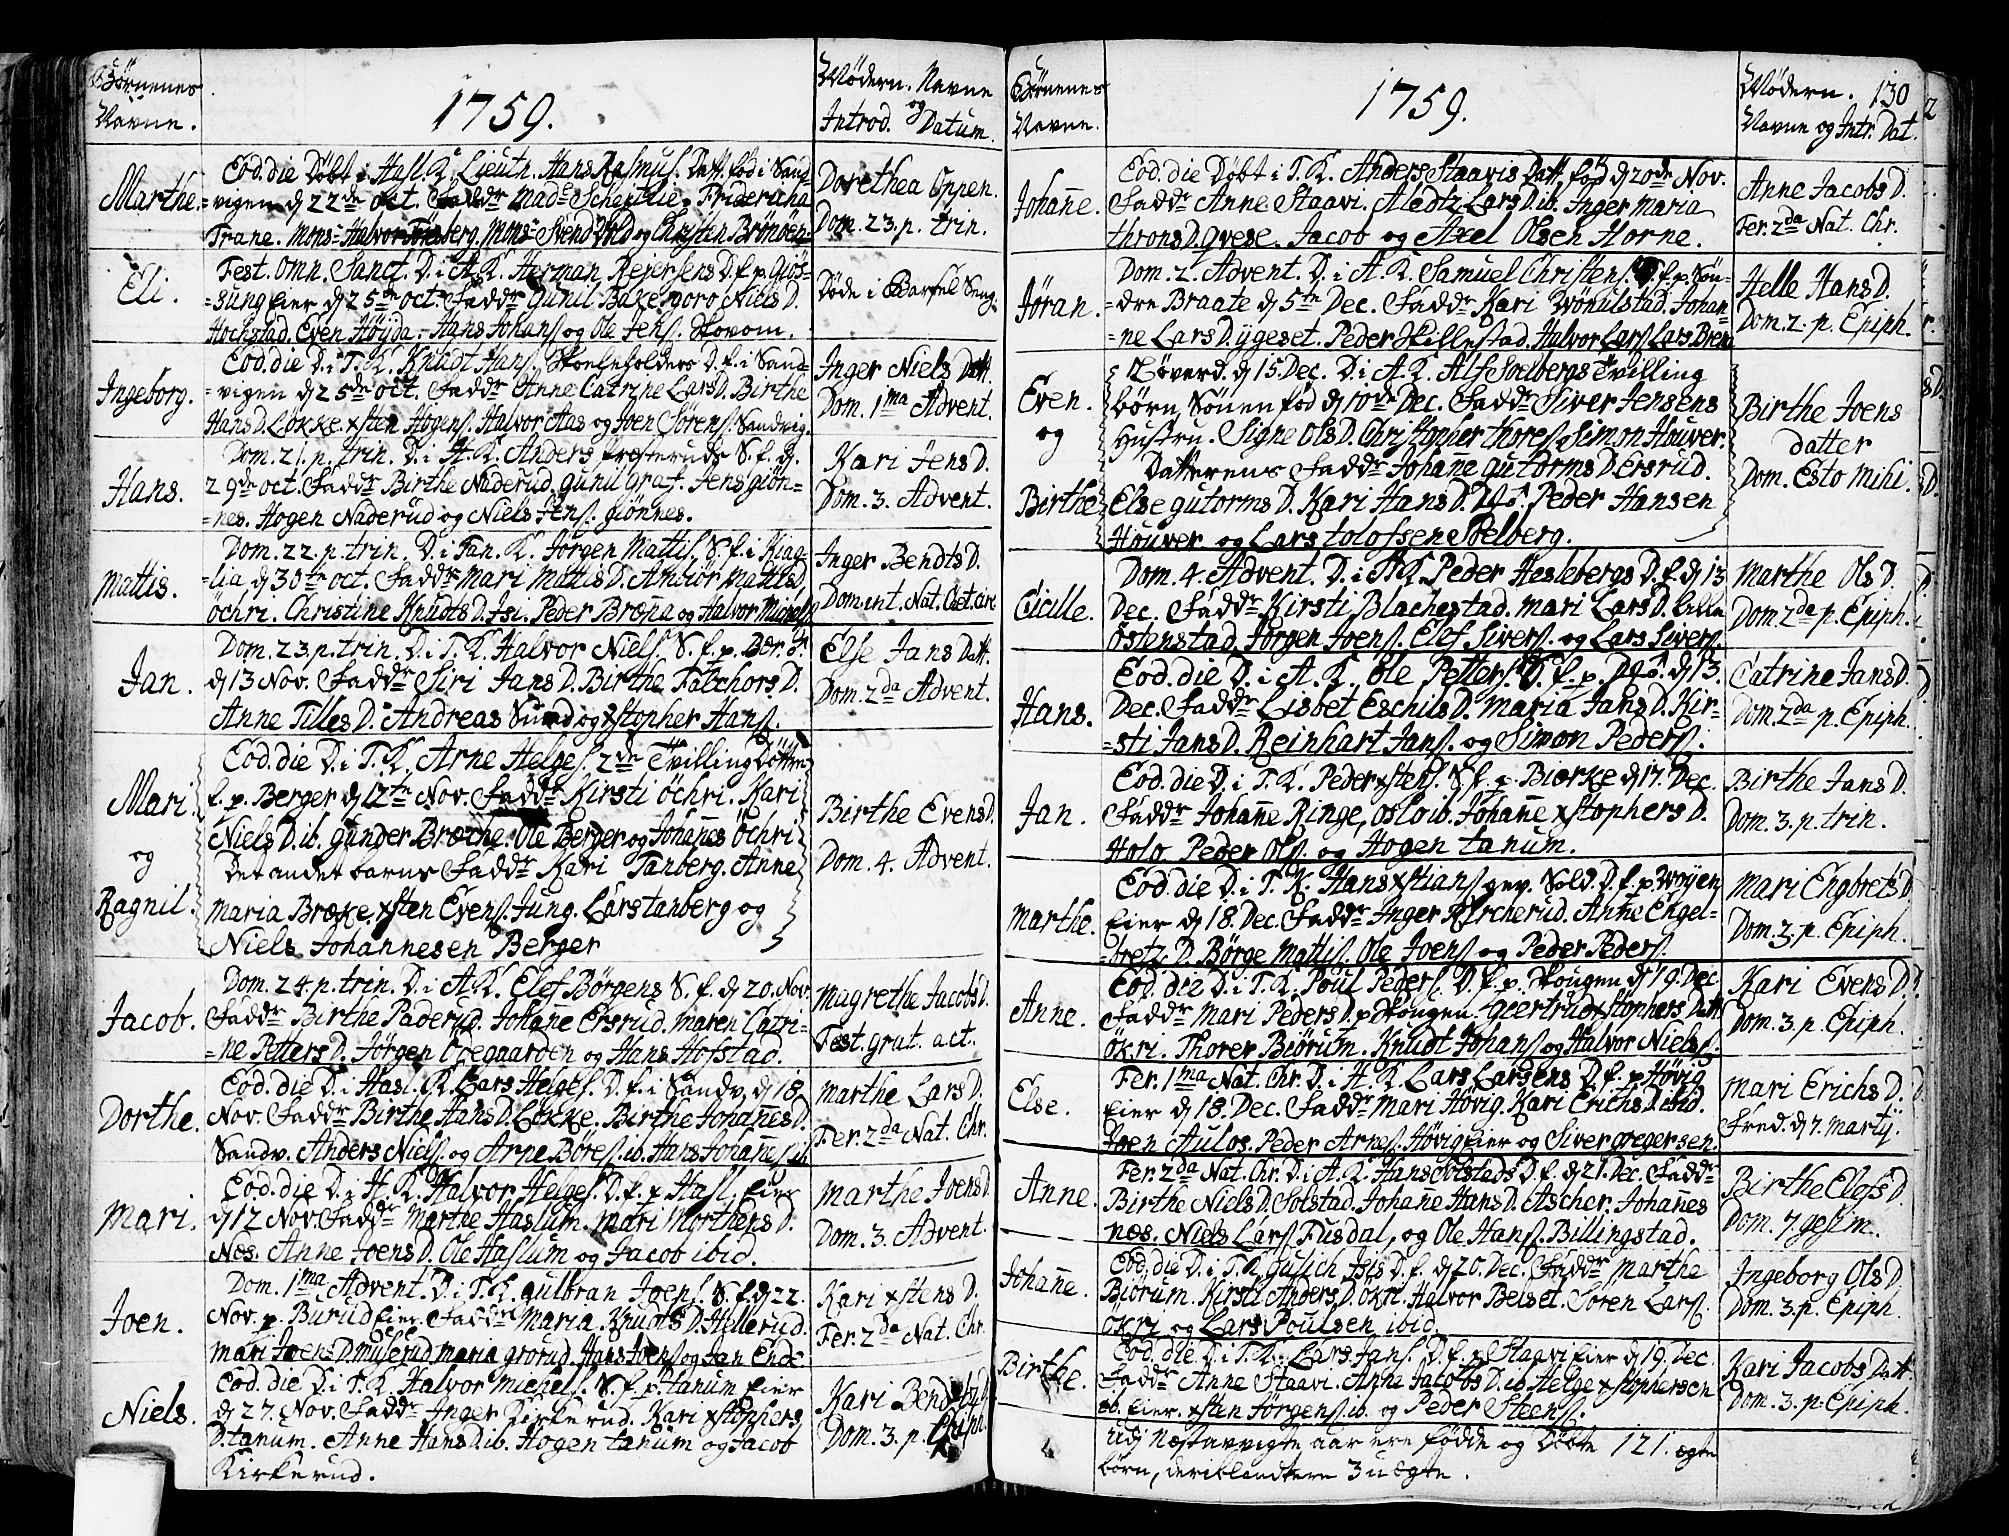 Børnenes
Navne.
1759.
Mødern. Navne
og
Introd. Datum.
Marthe.
Eod. die Døbt i Hasl. K. Lieutn. Hans Rasmus. Datt. fød i Sand-
vigen d 22de Oct. Faddr Mad. Fridericha
Trane. Mons. Halvor Mons. Svend og Christen
Dorethea Oppen.
Dom. 23. p. trin.
Eli.
Fest. Omn. Sanct. D. i A. K. Herman Rejersens D. f. p. Giøs-
=sung eier d 25de oct. Faddr Gunil Bake. goro Niels D.
Hochstad. Even Høyda. Hans Johans. og Ole Jens. Skovom.
Døde i Barsel Seng.
Ingeborg.
Eod. die D. i T. K. Knudt Hans. Skoeleholders D. f. i Sand-
=vigen d 25de oct. Faddr Anne Catrine Lars D. Birthe
Hans D. Løkke. xsten Hogens. Halvor Aas og Joen Sørens. Sandvig.
Inger Niels Datt.
Dom. 1ma Advent.
Hans.
Dom. 21. p. trin. D. i A. K. Anders S. f. d.
29de oct. Faddr Birthe Naderud. Gunil Graf. Jens giøn-
=nes. Hogen Naderud og Niels Jens. giønnes.
Kari Jens D.
Dom. 3. Advent.
Mattis.
Dom. 22. p. trin. D. i Tan. K. Jørgen Mattis. S. f. i Kiag-
=lia d 30te oct. Faddr Mari Mattis D. Ambiør Mattis D.
Öchri. Christine Knudts D. Isi. Peder Bræna og Halvor Michels.
Inger Bendts D.
Dom. int. Nat. Chr. et Circ.
Jan.
Dom. 23. p. trin. D. i T. K. Halvor Niels. S. f. p. Bær. F.
d 13 Nov. Faddr Siri Jans D. Birthe Falchors D.
Anne Tilles D. Andreas Sund og xstopher Hans.
Else Jans Datt.
Dom. 2da Advent.
Mari
og
Ragnil.
Eod. die D. i T. K. Arne Helges. 2de Tvilling Døttre
f. p. Berger d 12te Nov. Faddr Kirsti Öchri. Kari
Niels D. ib. Gunder Bræche. Ole Berger og Johannes Öchri
Det andet barns Faddr Kari Tanberg. Anne
Maria Bræke. xsten Evens. Jung. Lars tanberg og
Niels Johannesen Berger
Birthe Evens D.
Dom. 4. Advent.
Jacob.
Dom. 24. p. trin. D. i A. K. Elef Børgens S. f. d 20. Nov.
Faddr Birthe Paderud. Johane Ersrud. Maren Catri-
=ne Petters D. Jørgen Odegaarden og Hans Hofstad.
Magrethe Jacobs D.
Fest. grat. act.
Dorthe.
Eod. die D. i Hasl. K. Lars Helges. D. f. i Sandv. d 18
Nov. Faddr Birthe Hans D. Løkke. Birthe Johannes D.
Sandv. Anders Niels. og Arne Børes. ib. Hans Johannes. ib.
Marthe Lars D.
Fer. 2da Nat. Chr.
Mari.
Eod. die D. i H. K. Halvor Helges. D. f. p. Hasl. eier
d 12 Nov. Faddr Marthe Haslum. Mari Morthens D.
Næs. Anne Joens D. Ole Haslum og Jacob ibid.
Marthe Joens D.
Dom. 3. Advent.
Joen.
Dom. 1ma Advent. D. i T. K. Gulbran Joens. S. f. d 22
Nov. p. Burud Eier. Faddr Maria Knudts D. Hellerud.
Mari Joens D. Muserud Maria grorud. Hans Joens. og Jan Ende
Kari xstens D.
Fer. 2da Nat. Chr.
Niels.
Eod. die D. i T. K. Halvor Michels. S. f. p. Tanum Eier
d 27. Nov. Faddr Inger Kirkerud. Kari xstophers
D. tanum. Anne Hans D. ib. Hogen tanum og Jacob
Kirkerud.
Kari Bendts D.
Dom. 3. p. Epiph.
Børnenes
Navne.
1759.
Mødern. 130
Navne og Intr. Dat.
Johañe.
Eod. die Døbt i T. K. Anders Staavis Datt. fød d 20de Nov.
Faddr Anne Staavi. Aledtz Lars D. ib. Inger Maria
throns D. Gvese. Jacob og Axel Olsen Horne.
Anne Jacobs D.
Fer. 2da Nat. Chr.
Jøran.
Dom. 2. Advent. D. i A. K. Samuel Christens. D. f. p. Søn-
=dre Braate d 5te Dec. Faddr Kari Wønulstad. Johan-
=ne Lars D. ygeset. Peder Hillestad. Halvor Lars. Lars Brena
Helle Hans D.
Dom. 2. p. Epiph.
Even.
og
Birthe
Løverd. d 15 Dec. D. i A. K. Alf Solbergs Tvilling
børn, Sønen fød d 10de Dec. Faddr Siver Jensens
Hustru. Signe Ols D. Christopher thores. Simon Houver.
Datterens Faddr Johañe gutorms D. Ersrud.
Else gutorms D. Kari Hans D. Dgs. Peder Hansen
Houver og Lars tolofssen Solberg.
Birthe Joens
datter
Dom. Esto Mihi.
Cicille.
Dom. 4. Advent. D. i T. K. Peder Heslebergs D. f. d 13
Dec. Faddr Kirsti Blachestad. Mari Lars D. lille
Östenstad. Jørgen Joens. Elef Sivers. og Lars Sivers.
Marthe Ols D.
Dom. 2da p. Epiph.
Hans.
Eod. die D. i A. K. Ole Petters. S. f. p. Dgs. d 13.
Dec. Faddr Lisbet Eschils D. Maria Jans D. Kir-
=sti Jans D. Reinhart Jans. og Simon Peders.
Catrine Jans D.
Dom. 2da p. Epiph.
Jan.
Eod. die D. i T. K. Peder xstens. S. f. p. Biørke d 17. Dec.
Faddr Johañe Ringe, Oslo ib. Johañe xstophers D.
Holo Peder Ols. og Hogen tanum.
Birthe Jans D.
Dom. 3. p. trin.
Marthe.
Eod. die D. i T. K. Hans xstians. gev. Sold. D. f. p. Wøyen
Eier d 18. Dec. Faddr Inger Kircherud. Anne Engel-
=bretz D. Børge Mattis. Ole Joens. og Peder Peders.
Mari Engbrets D.
Dom. 3. p. Epiph.
Anne.
Eod. die D. i T. K. Poul Peders. D. f. p. Skougen d 19. Dec
Faddr Mari Peders D. p Skougen. Geertrud xstophers Datt.
Økri. Thorer Biørum. Knudt Johans. og Halvor Niels.
Kari Evens D.
Dom. 3. p. Epiph.
Else.
Fer. 1ma Nat. Chr. D. i H. K. Lars Larsens D. f. p Høvig
Eier d 18. Dec. Faddr Mari Høvig. Kari Erichs D. ibid.
Joen Aulos. Peder Arnes. Høvig eier og Siver gregersen.
Mari Erichs D.
Fred. d 7. Martij.
Anne.
Fer. 2da Nat. Chr. D. i A. K. Hans Solstads D. f. d 21. Dec. Faddr
Birthe Niels D. Solstad. Johane Hans D. Ascher. Johañes
Næs. Niels Lars. Fusdal, og Ole Hans. Billingstad.
Birthe Elefs D.
Dom. 7. gesim.
Johañe.
Eod. die D. i T. K. Gulich Isis D. f. d 20. Dec. Faddr Marthe
Biørum. Kirsti Anders D. Økri. Halvor Beiset. Søren Lars.
Økri og Lars Poulsen ibid.
Ingeborg Ols D.
Dom. 3. p. Epiph.
Birthe.
Eod. die D. i T. K. Lars Jans. D. f. p Staavi Eier d 19. Dec.
Faddr Anne Staavi. Anne Jacobs D. ib. Helge xstophersen
ib. eier. xsten Jørgens. ib. og Peder Steens.
Kari Jacobs Datt.
Dom. 3. p. Epiph.
Udj Næstavvigte aar ere fødde og Døbte 121. ægte
børn, deriblandt ere 3 uægte.